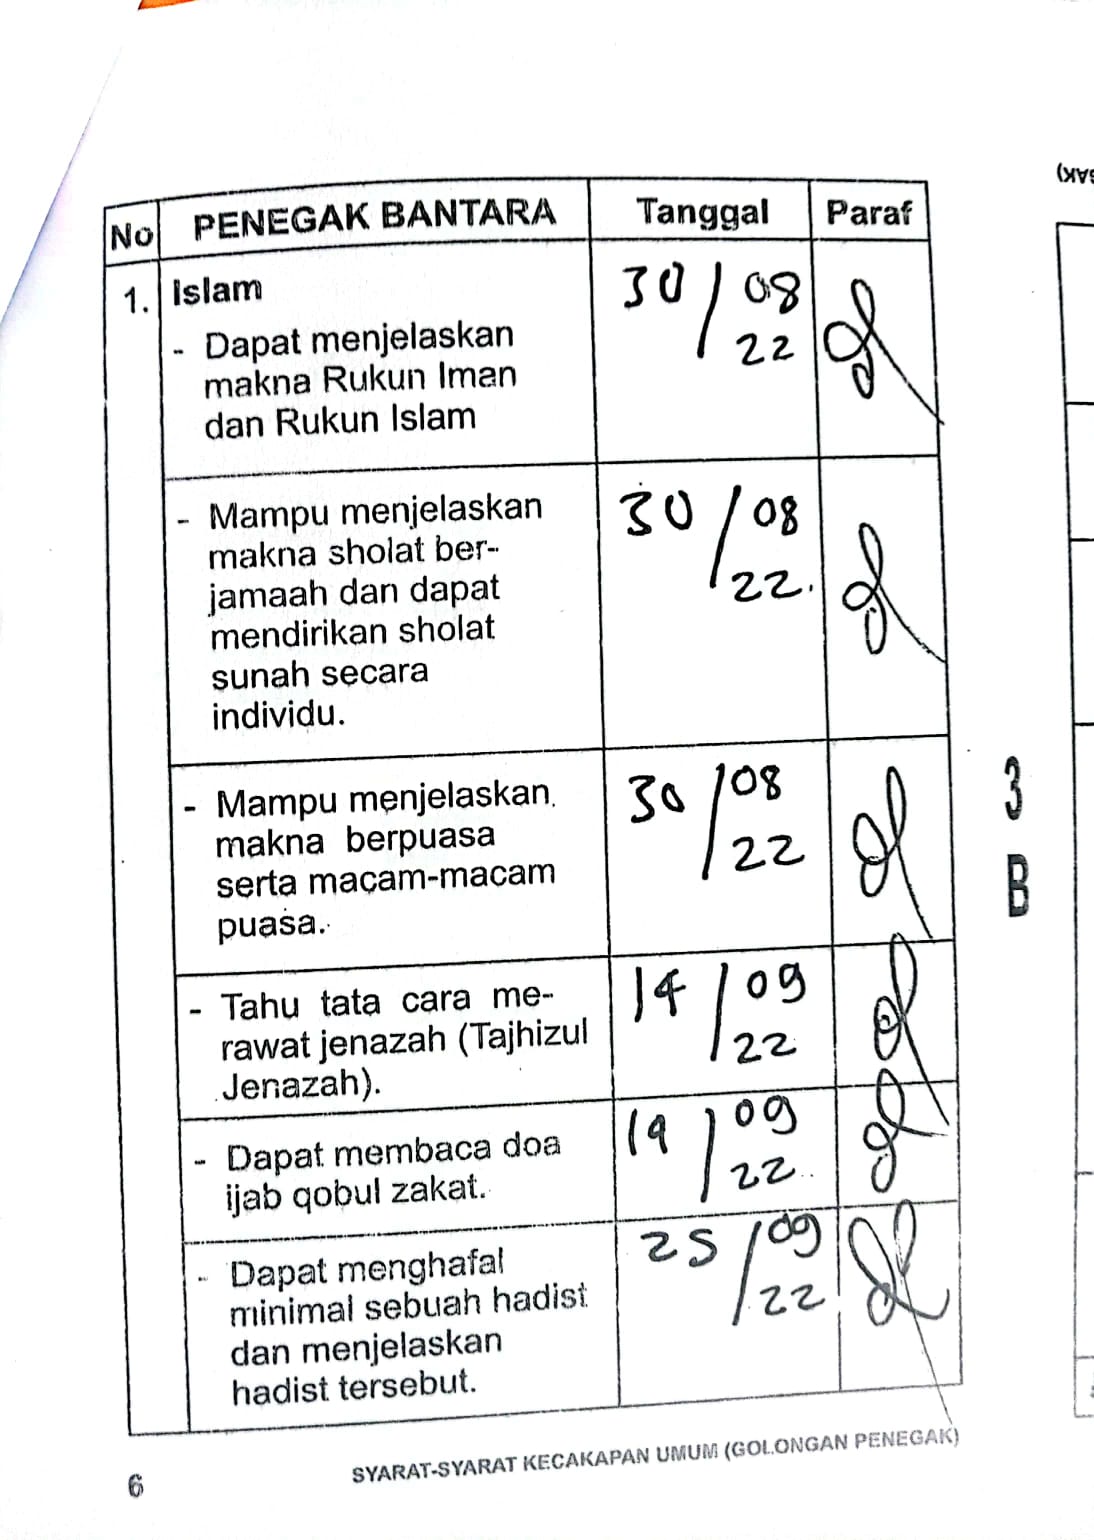 No PENEGAK BANTARA Tanggal Paraf
1. Islam
- Dapat menjelaskan
makna Rukun Iman
dan Rukun Islam
30/08
22
- Mampu menjelaskan
makna sholat ber-
jamaah dan dapat
mendirikan sholat
sunah secara
individu.
30/08
22.
- Mampu menjelaskan
makna berpuasa
serta macam-macam
puasa.
30/08
22
- Tahu tata cara me-
rawat jenazah (Tajhizul
Jenazah).
14/09
22
- Dapat membaca doa
ijab qobul zakat.
19/09
22
- Dapat menghafal
minimal sebuah hadist
dan menjelaskan
hadist tersebut.
25/09
22
6
SYARAT-SYARAT KECAKAPAN UMUM (GOLONGAN PENEGAK)
3
B